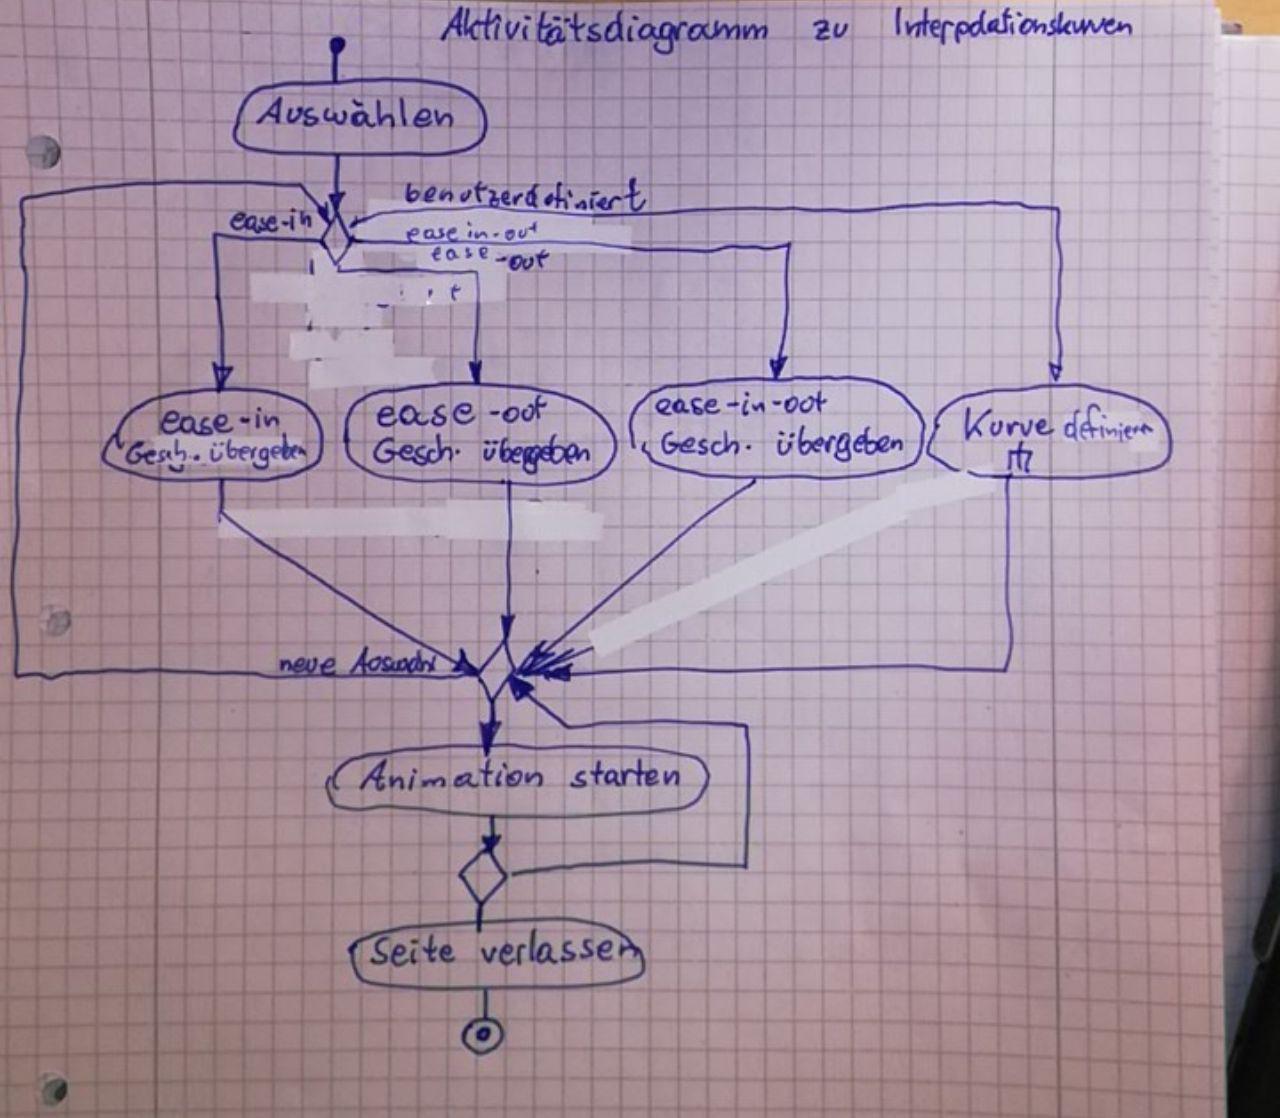 Aktivitätsdiagramm zu Interpolationskurven
Auswählen
benutzerdefiniert
ease-in
ease in-out
ease-out
ease-in
Gesch. übergeben
ease-out
Gesch. übergeben
ease-in-out
Gesch. übergeben
Kurve definieren
neue Auswahl
Animation starten
Seite verlassen